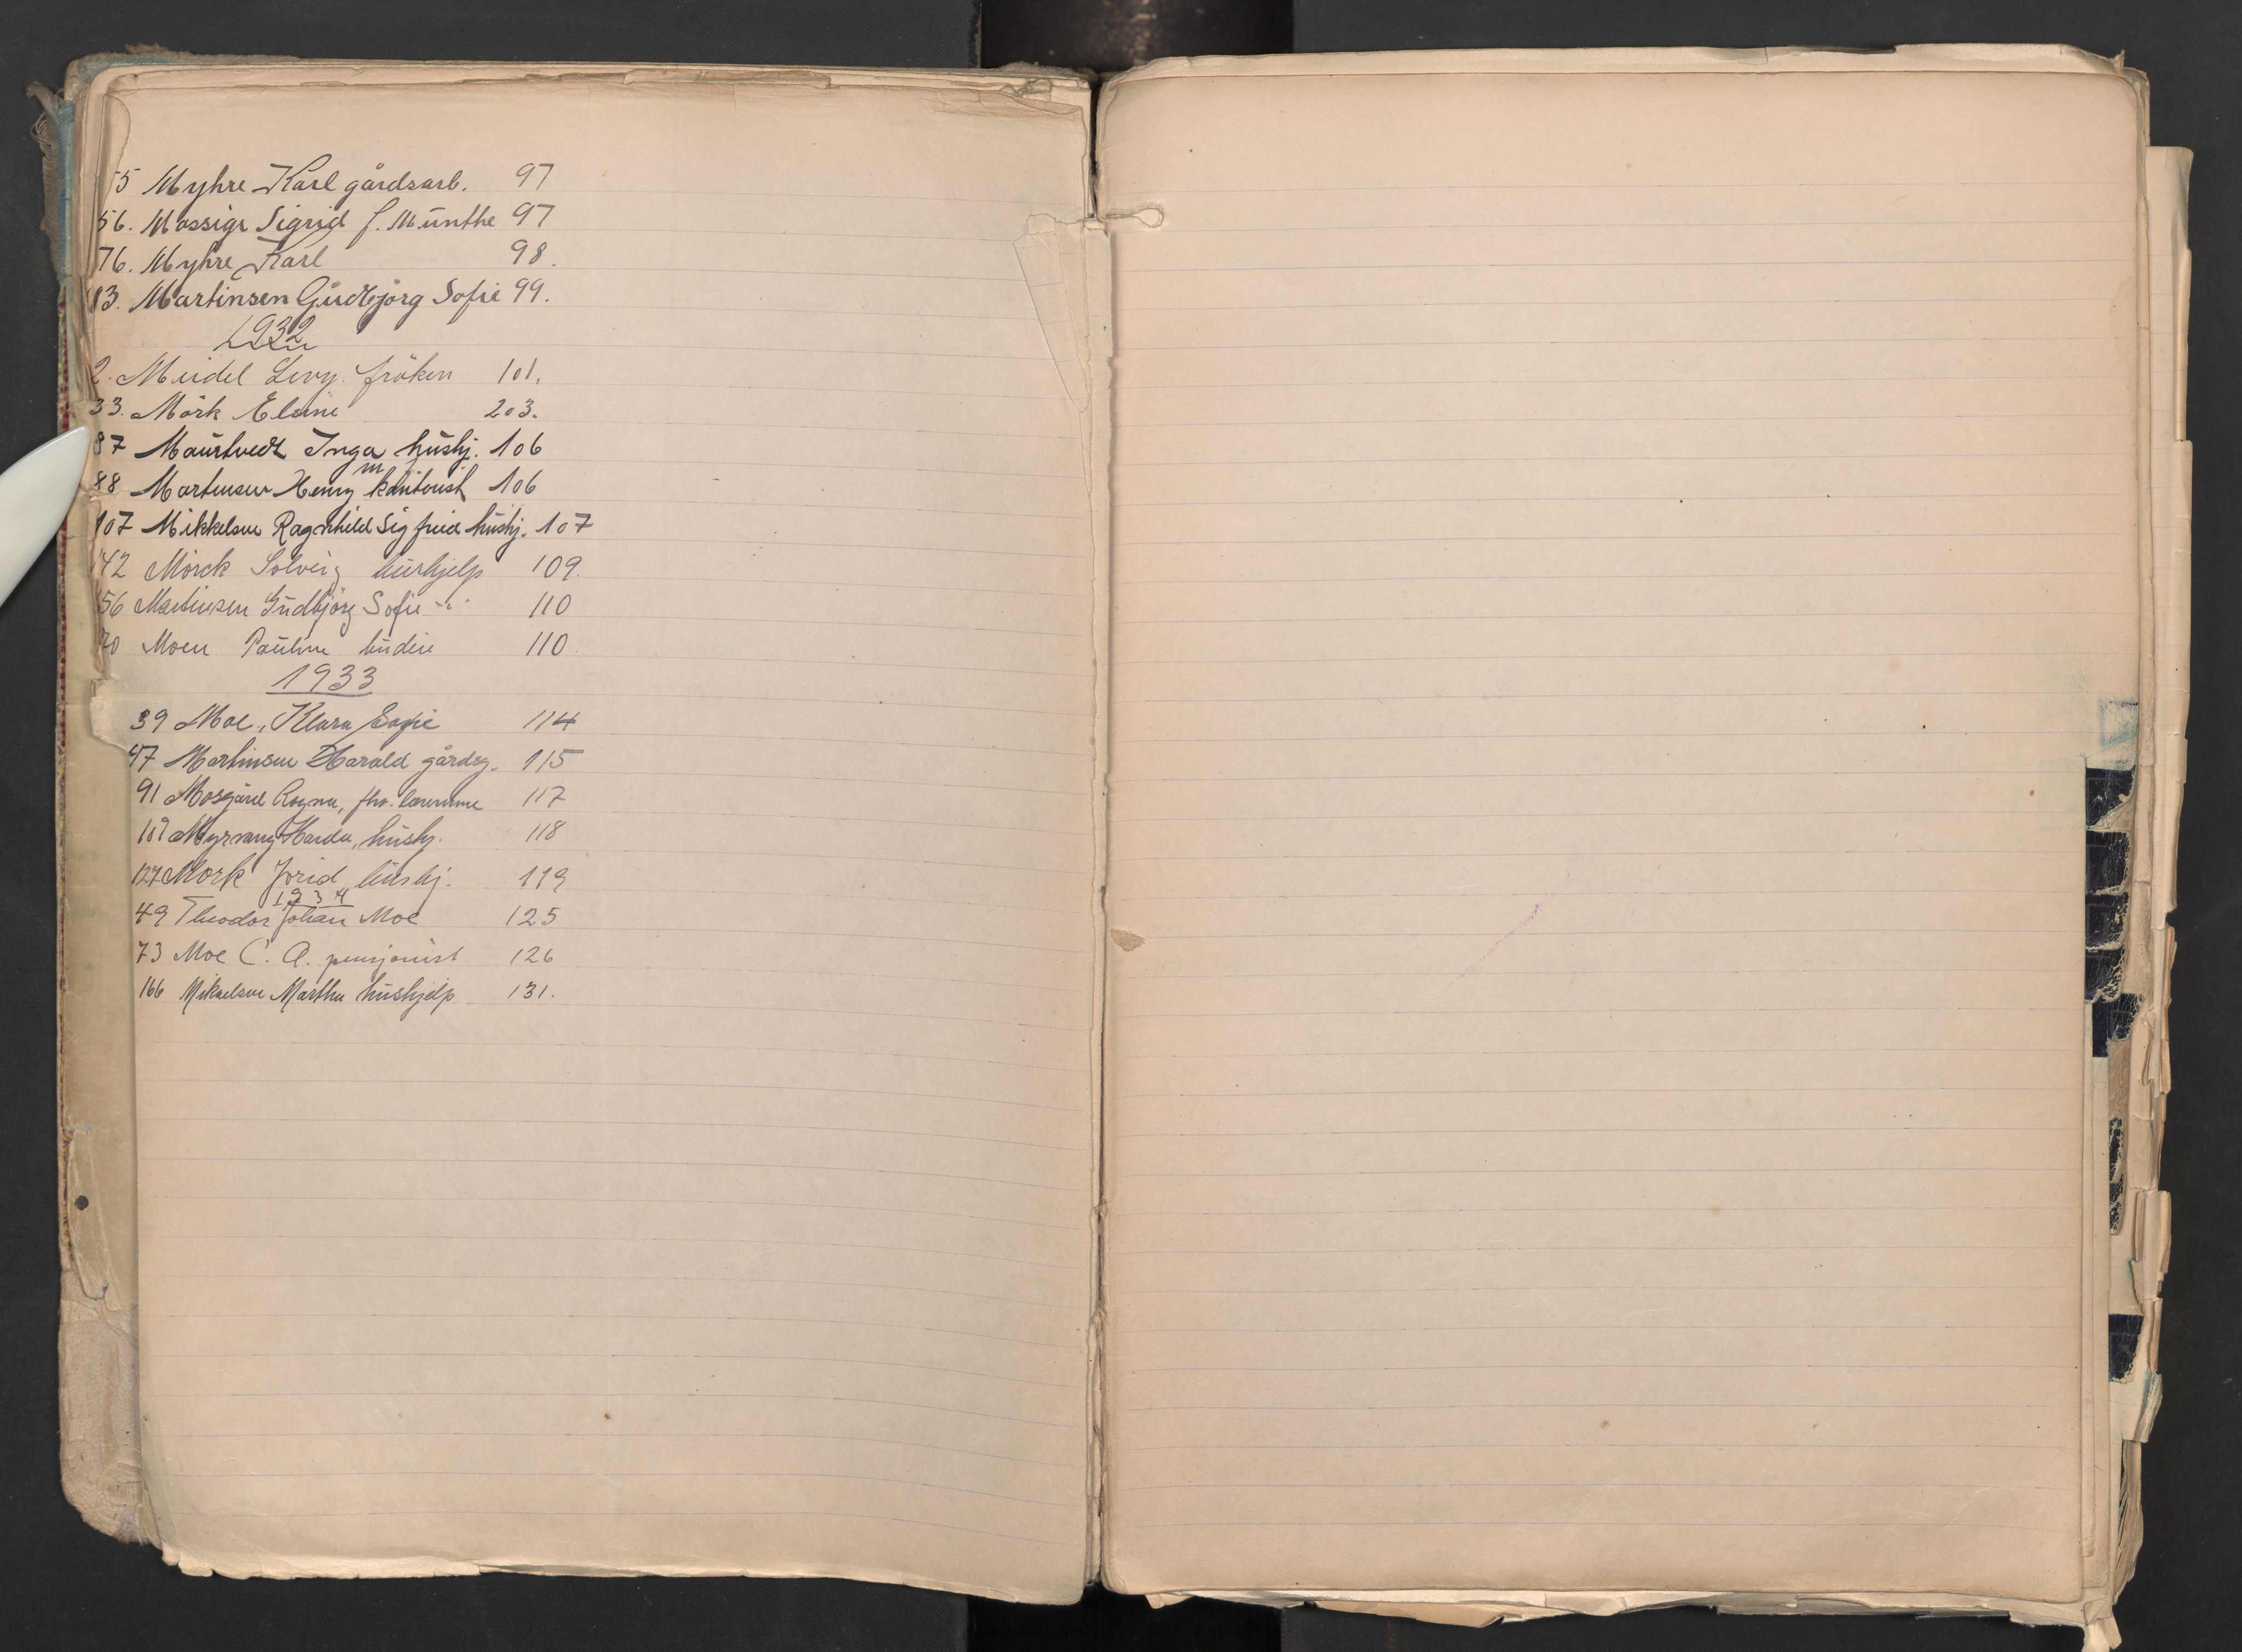 55 Myhre Karl gårdsarb. 97
56. Mossige Sigrid f. Munthe 97
76. Myhre Karl 98.
83. Martinsen Gudbjörg Sofie 99.
1932
2. Meidel Levy. fröken 101.
33. Mörk Elsine 203.
87 Maurtvedt Inga hushj. 106
88 Martinsen Henry M kontorist 106
107 Mikkelsen Ragnhild Sigfrid hushj. 107
142 Mörck Solveig hushjelp 109.
156 Martinsen Gudbjörg Sofie -"- 110
Moen Pauline 110.
1933
39 Moe, Klara Sofie 114
47 Martinsen Harald gårdsg. 115
91 Mosgård Ragna, fhv. lærerinne 117
Myrvang Harda, hushj. 118
127 Mork Jorid hushj. 119
1934
49 Theodor Johan Moe 125
73 Moe C. A. pensjonist 126
166 Mikaelsen Martha hushjelp 131.